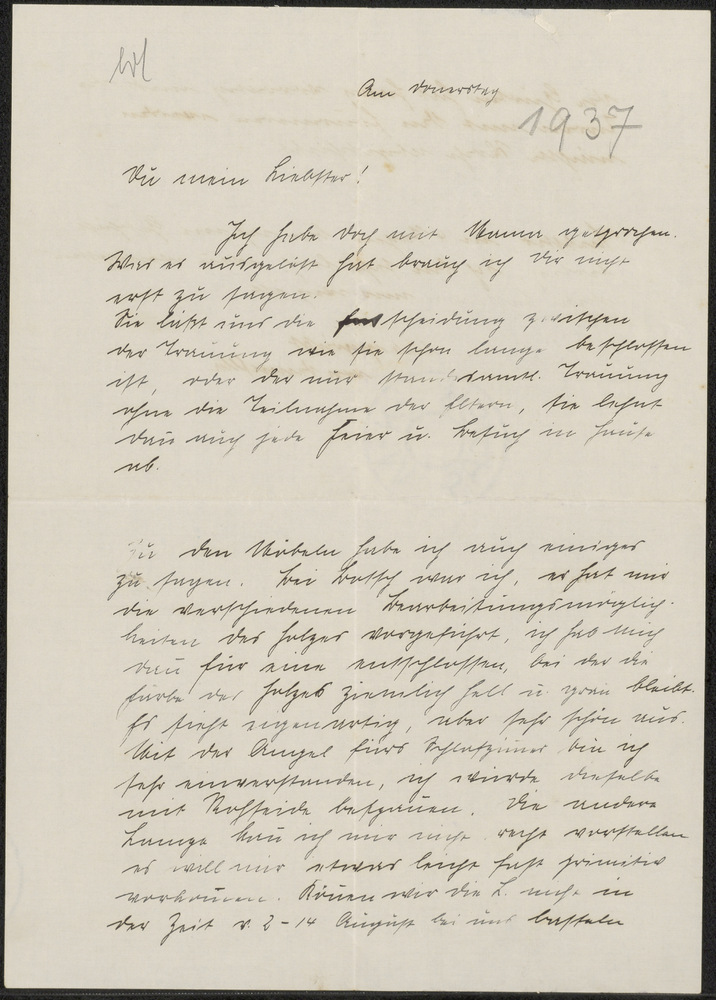 Am Donerstag
1937
Du mein Liebster!
Ich habe doch mit Mama gesprochen.
Was es ausgelöst hat brauch ich Dir nicht
erst zu sagen.
Sie läßt uns die Entscheidung zwischen
der Trauung wie sie schon lange beschlossen
ist, oder der nur standesamtl. Trauung
ohne die Teilnahme der Eltern, sie lehnt
dan auch jede Feier u. Besuch im Hause
ab.
Zu den Möbeln habe ich auch einiges
zu sagen. Bei war ich, er hat mir
die verschiedenen Bearbeitungsmöglich-
keiten des Holzes vorgeführt, ich hab mich
dan für eine entschlossen, bei der die
Farbe des Holzes ziemlich hell u. grau bleibt.
Es sieht eigenartig, aber sehr schön aus.
Mit der Ampel fürs Schlafzimer bin ich
sehr einverstanden, ich würde dieselbe
mit Rohseide bespanen. Die andere
Lampe kan ich mir nicht recht vorstellen
es will mir etwas leicht fast primitiv
vorkomen. Könen wir die L. nicht in
der Zeit v. 2-14 August bei uns basteln